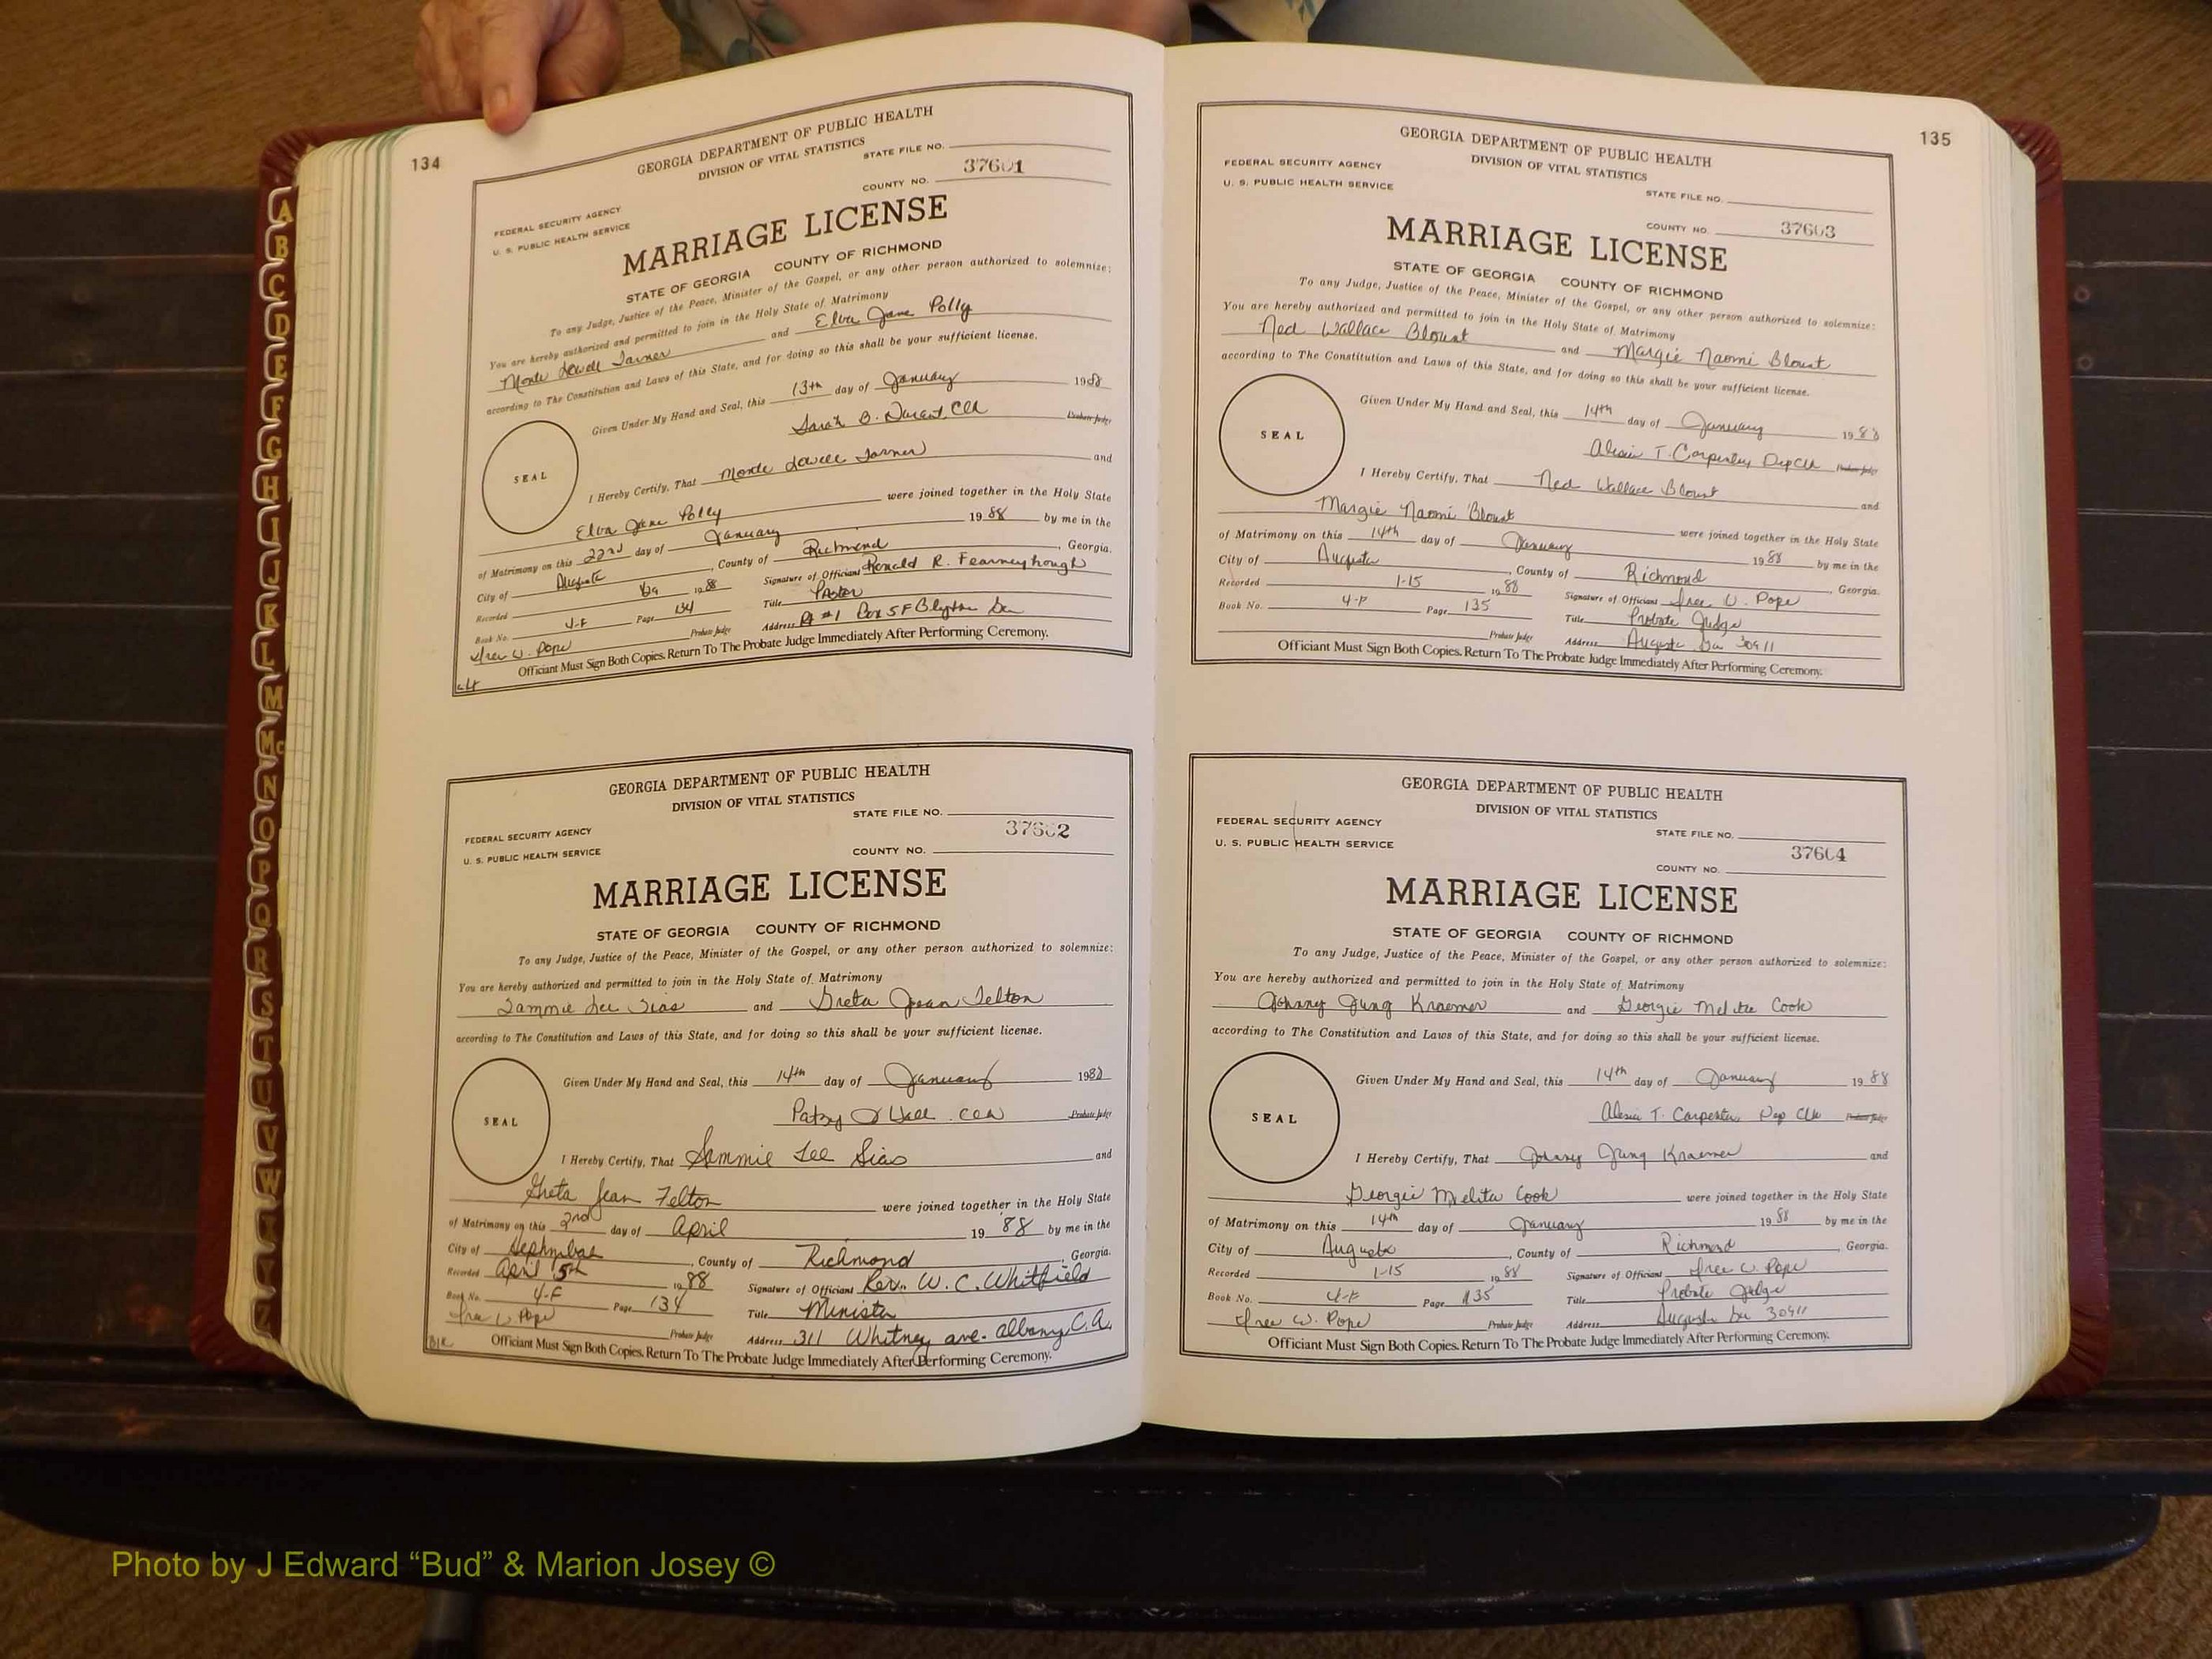 134
GEORGIA DEPARTMENT OF PUBLIC HEALTH
DIVISION OF VITAL STATISTICS
STATE FILE NO.
37601
COUNTY NO.
FEDERAL SECURITY AGENCY
U. S. PUBLIC HEALTH SERVICE
MARRIAGE LICENSE
STATE OF GEORGIA COUNTY OF RICHMOND
To any Judge, Justice of the Peace, Minister of the Gospel, or any other person authorized to solemnize:
You are hereby authorized and permitted to join in the Holy State of Matrimony
Monte Lowell and Elva Jane Polly
according to The Constitution and Laws of this State, and for doing so this shall be your sufficient license.
Given Under My Hand and Seal, this 13th day of January 1988
Sarah B. Clk Probate Judge
SEAL
I Hereby Certify, That Monte Lowell and
Elva Jane Polly were joined together in the Holy State
of Matrimony on this 22nd day of January 19 88 by me in the
City of Augusta, County of Richmond, Georgia.
Recorded 19 88 Signature of Officiant Ronald R. Fearneyhough
Book No. 4-F Page 134 Title Pastor
Iree W. Pope Probate Judge Address Rt #1 Box 5F Blythe Ga
Officiant Must Sign Both Copies. Return To The Probate Judge Immediately After Performing Ceremony.
GEORGIA DEPARTMENT OF PUBLIC HEALTH
DIVISION OF VITAL STATISTICS
STATE FILE NO.
37602
FEDERAL SECURITY AGENCY
U. S. PUBLIC HEALTH SERVICE
COUNTY NO.
MARRIAGE LICENSE
STATE OF GEORGIA COUNTY OF RICHMOND
To any Judge, Justice of the Peace, Minister of the Gospel, or any other person authorized to solemnize:
You are hereby authorized and permitted to join in the Holy State of Matrimony
Sammie Lee Sias and Greta Jean Felton
according to The Constitution and Laws of this State, and for doing so this shall be your sufficient license.
Given Under My Hand and Seal, this 14th day of January 1988
Patsy Clk Probate Judge
SEAL
I Hereby Certify, That Sammie Lee Sias and
Greta Jean Felton were joined together in the Holy State
of Matrimony on this 2nd day of April 19 88 by me in the
City of Hephzibah, County of Richmond, Georgia.
Recorded April 5th 19 88 Signature of Officiant Rev. W. C. Whitfield
Book No. 4-F Page 134 Title Minister
Iree W. Pope Probate Judge Address 311 Whitney ave. albany, G.A.
Officiant Must Sign Both Copies. Return To The Probate Judge Immediately After Performing Ceremony.
135
GEORGIA DEPARTMENT OF PUBLIC HEALTH
DIVISION OF VITAL STATISTICS
FEDERAL SECURITY AGENCY
U. S. PUBLIC HEALTH SERVICE
STATE FILE NO.
COUNTY NO. 37603
MARRIAGE LICENSE
STATE OF GEORGIA COUNTY OF RICHMOND
To any Judge, Justice of the Peace, Minister of the Gospel, or any other person authorized to solemnize:
You are hereby authorized and permitted to join in the Holy State of Matrimony
Ned Wallace Blount and Margie Naomi Blount
according to The Constitution and Laws of this State, and for doing so this shall be your sufficient license.
Given Under My Hand and Seal, this 14th day of January 1988
Alesia T. Carpenter, Dep Clk Probate Judge
SEAL
I Hereby Certify, That Ned Wallace Blount and
Margie Naomi Blount were joined together in the Holy State
of Matrimony on this 14th day of January 19 88 by me in the
City of Augusta, County of Richmond, Georgia.
Recorded 1-15 19 88 Signature of Officiant Iree W. Pope
Book No. 4-F Page 135 Title Probate Judge
Probate Judge Address Augusta Ga 30911
Officiant Must Sign Both Copies. Return To The Probate Judge Immediately After Performing Ceremony.
GEORGIA DEPARTMENT OF PUBLIC HEALTH
DIVISION OF VITAL STATISTICS
FEDERAL SECURITY AGENCY
U. S. PUBLIC HEALTH SERVICE
STATE FILE NO.
37604
COUNTY NO.
MARRIAGE LICENSE
STATE OF GEORGIA COUNTY OF RICHMOND
To any Judge, Justice of the Peace, Minister of the Gospel, or any other person authorized to solemnize:
You are hereby authorized and permitted to join in the Holy State of Matrimony
Johnny Jung Kraemer and Georgie Melita Cook
according to The Constitution and Laws of this State, and for doing so this shall be your sufficient license.
Given Under My Hand and Seal, this 14th day of January 19 88
Alesia T. Carpenter, Dep Clk Probate Judge
SEAL
I Hereby Certify, That Johnny Jung Kraemer and
Georgie Melita Cook were joined together in the Holy State
of Matrimony on this 14th day of January 19 88 by me in the
City of Augusta, County of Richmond, Georgia.
Recorded 1-15 19 88 Signature of Officiant Iree W. Pope
Book No. 4-F Page 135 Title Probate Judge
Iree W. Pope Probate Judge Address Augusta Ga 30911
Officiant Must Sign Both Copies. Return To The Probate Judge Immediately After Performing Ceremony.
A
B
C
D
E
F
G
H
I
J
K
L
M
Mc
N
O
P
Q
R
S
T
U
V
W
X
Y
Z
Photo by J Edward “Bud” & Marion Josey ©